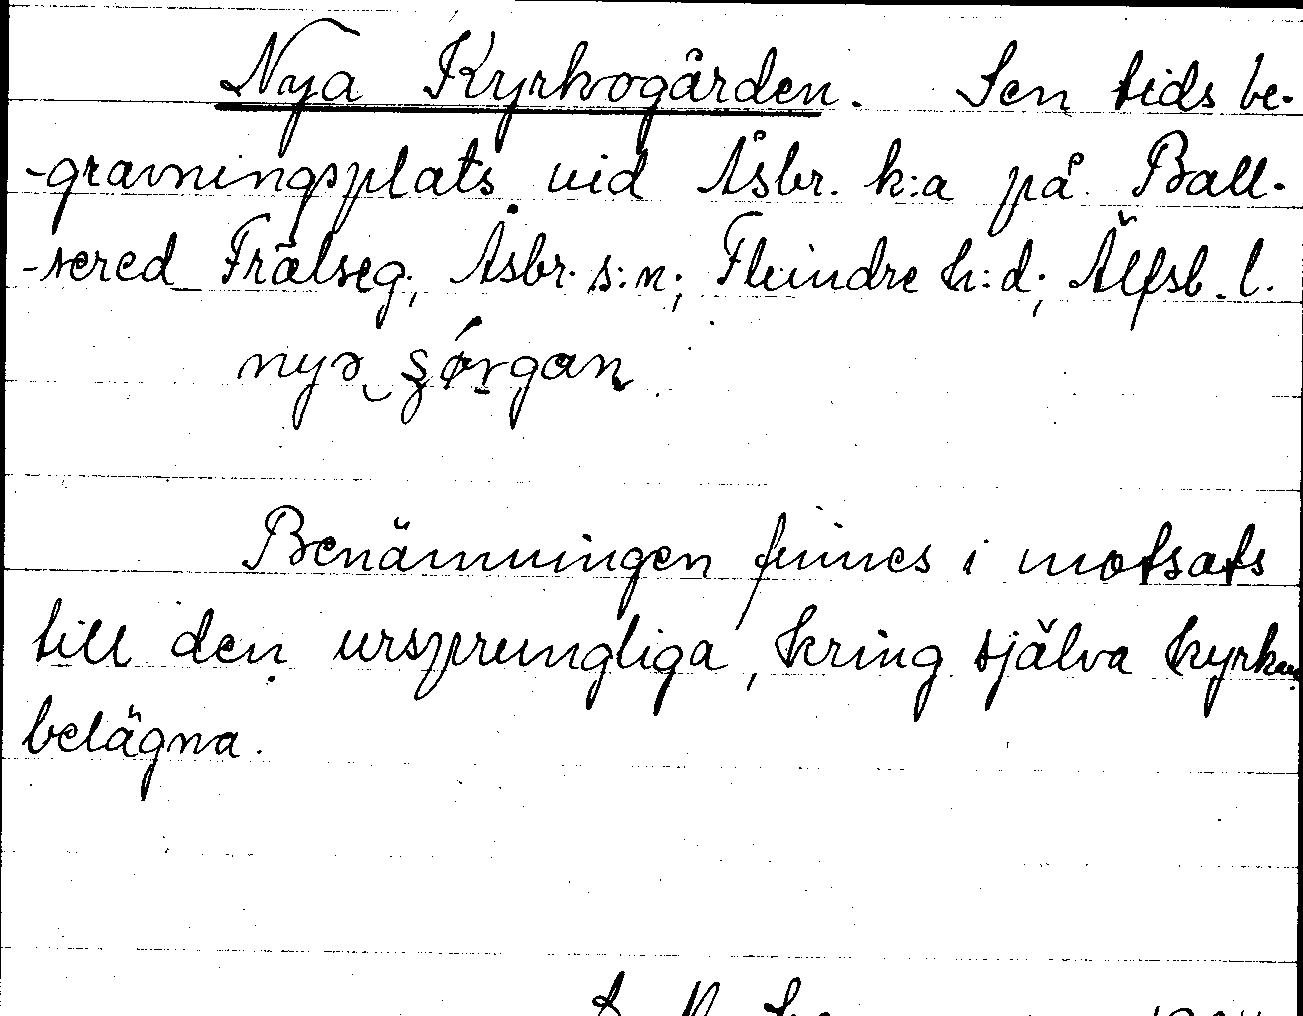 Nya Kyrkogården. Sen tids be-
-gravningsplats vid Åsbr. k:a på Ball-
-sered Frälseg; Åsbr. s:n; Flundre h:d; Älfsb. l.
Benämningen finnes i motsats
till den ursprungliga, kring själva kyrkan
belägna.